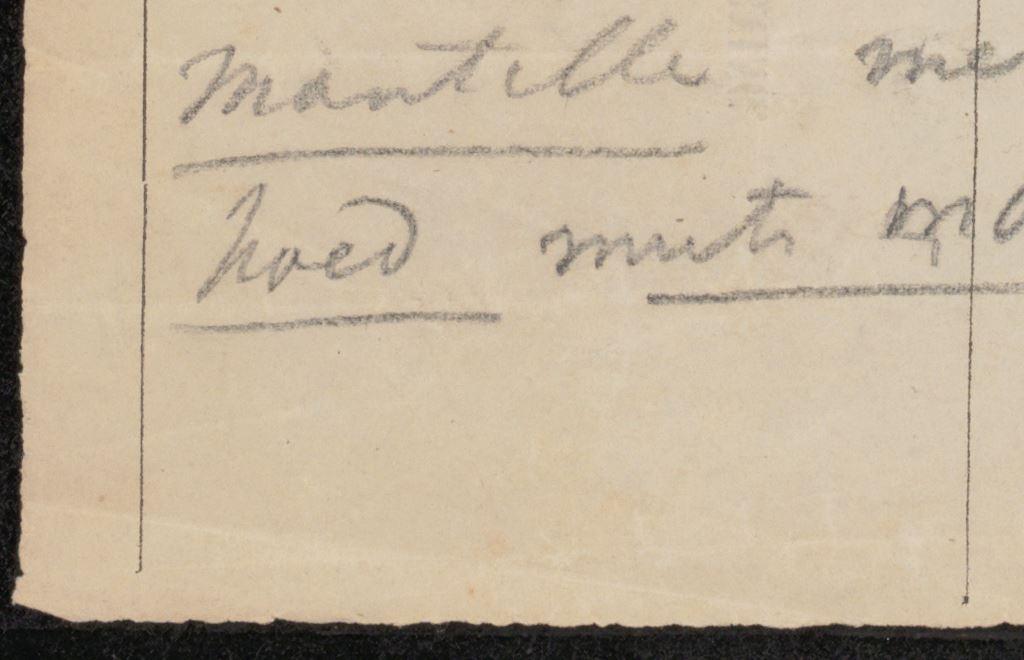 Mantille me
hoed muts